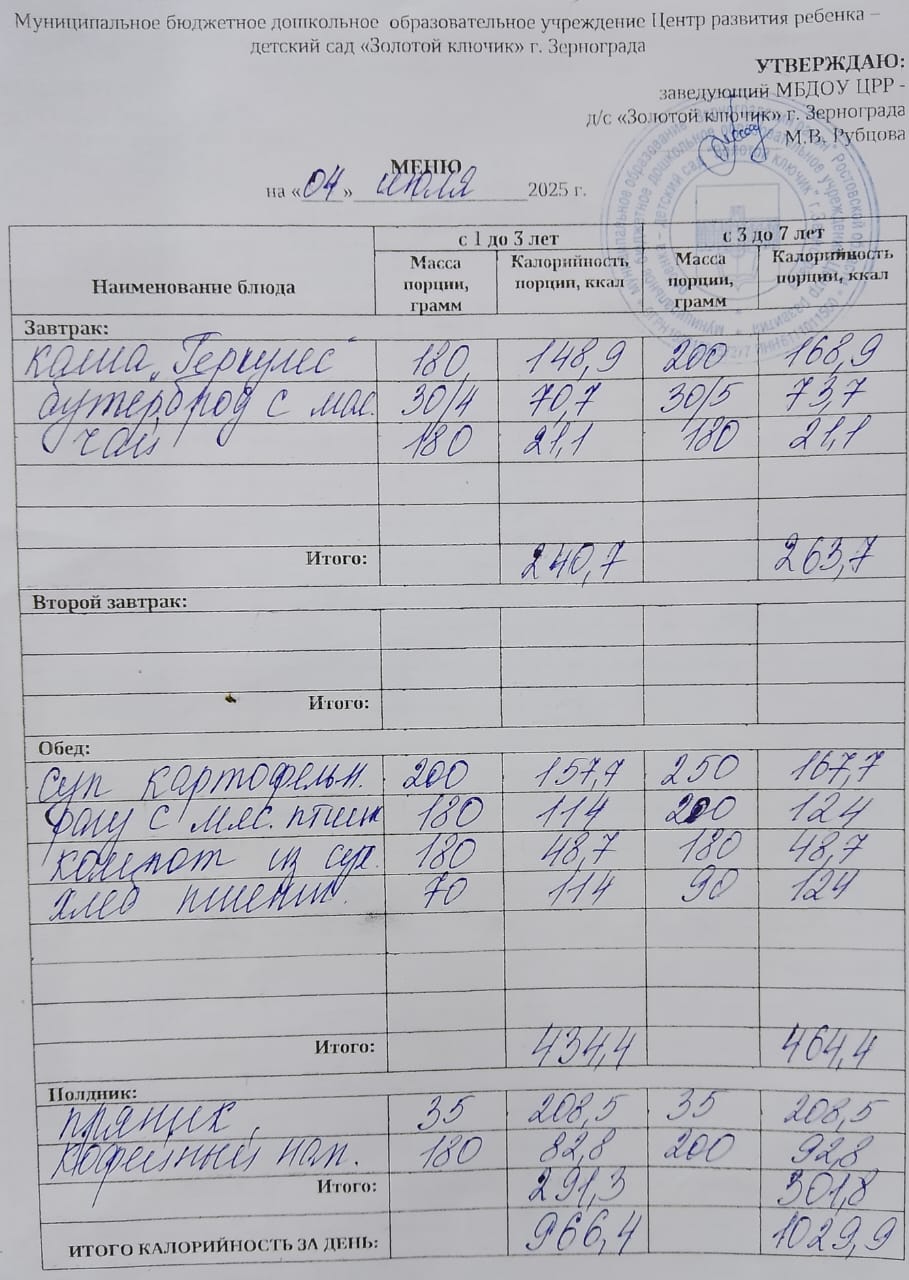 Муниципальное бюджетное дошкольное образовательное учреждение Центр развития ребенка –
детский сад «Золотой ключик» г. Зернограда
УТВЕРЖДАЮ:
заведующий МБДОУ ЦРР -
д/с «Золотой ключик» г. Зернограда
М.В. Рубцова
МЕНЮ
на «04» июля 2025 г.
Наименование блюда с 1 до 3 лет с 3 до 7 лет
Масса порции, грамм Калорийность порции, ккал Масса порции, грамм Калорийность порции, ккал
Завтрак:
каша „Геркулес" 180 148,9 200 168,9
бутерброд с мас. 30/4 70,7 30/5 73,7
чай 180 21,1 180 21,1
Итого: 240,7 263,7
Второй завтрак:
Итого:
Обед:
суп картофельн. 200 157,7 250 167,7
рагу с мяс. птицы 180 114 200 124
компот из сух. 180 48,7 180 48,7
хлеб пшенич. 70 114 90 124
Итого: 434,4 464,4
Полдник:
пряник 35 208,5 35 208,5
Кофейный нап. 180 82,8 200 92,8
Итого: 291,3 301,8
ИТОГО КАЛОРИЙНОСТЬ ЗА ДЕНЬ: 966,4 1029,9